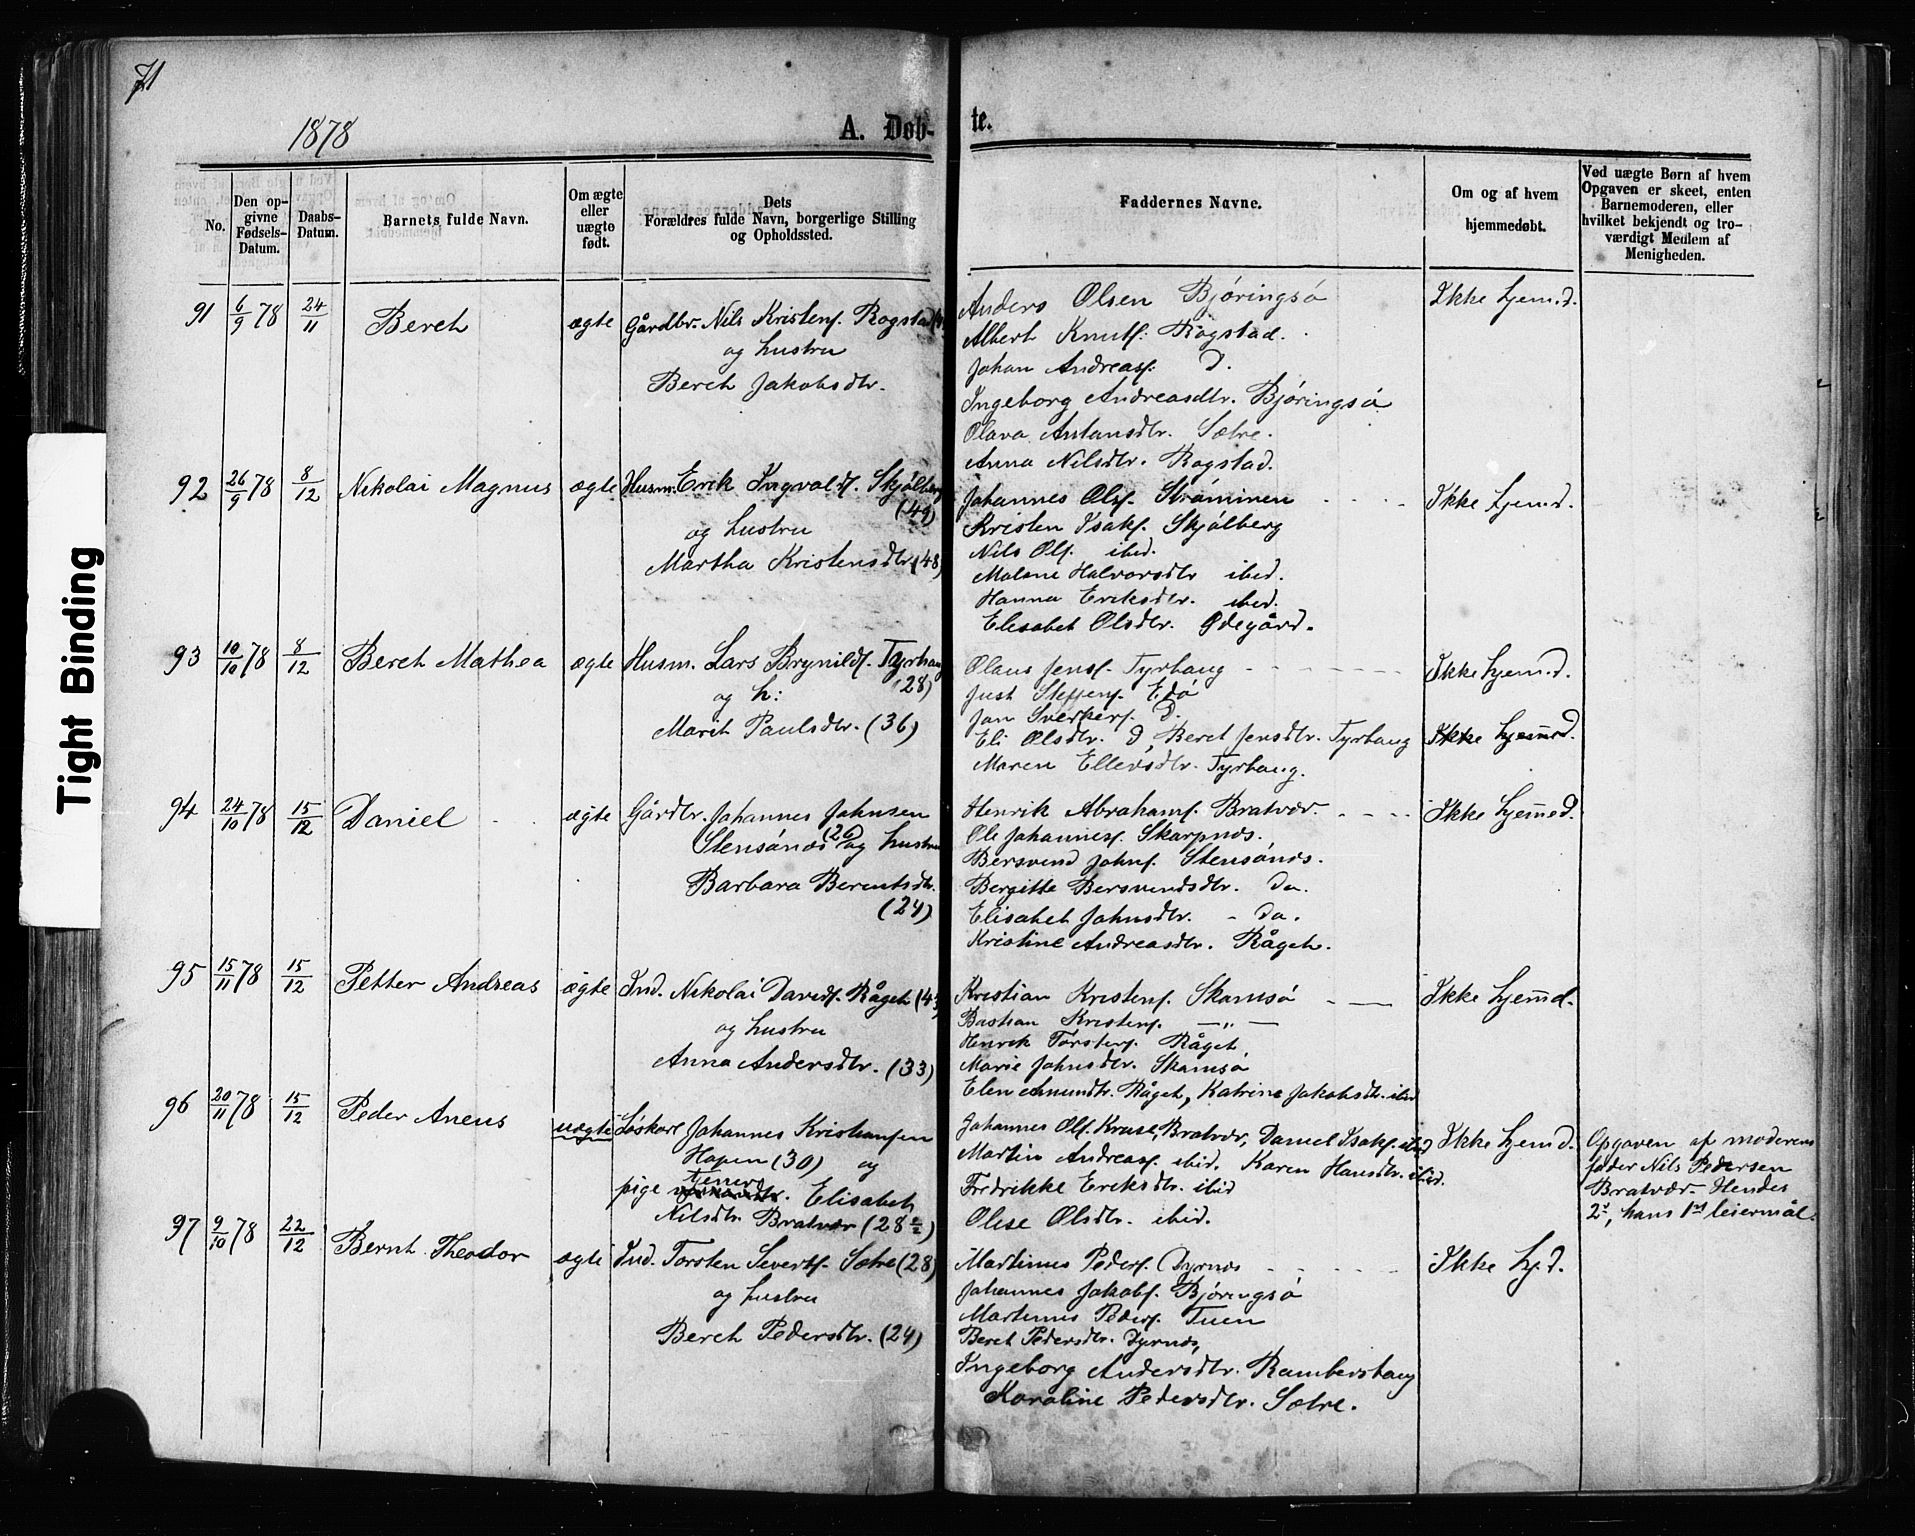 71
1878
A. Døb-
te.
No.
Den op-
givne
Fødsels-
Datum.
Daabs-
Datum.
Barnets fulde Navn.
Om ægte
eller
uægte
født.
Dets
Forældres fulde Navn, borgerlige Stilling
og Opholdssted.
Faddernes Navne.
Om og af hvem
hjemmedøbt.
Ved uægte Børn af hvem
Opgaven er skeet, enten
Barnemoderen, eller
hvilket bekjendt og tro-
værdigt Medlem af
Menigheden.
91 6/9 78 24/11 Beret ægte Gårdbr. Nils Kristens. Rogstad
og hustru
Beret Jakobsdtr.
Anders Olsen Bjøringsø
Albert Knuts. Rogstad.
Johan Andreass. D.
Ingeborg Andreasdtr. Bjøringsø
Olava Antonsdtr. Sætre.
Anna Nilsdtr. Rogstad.
Ikke hjem.d.
92 26/9 78 8/12 Nikolai Magnus ægte Husm. Erik Ingvalds. Skjølberg
(49)
og hustru
Martha Kristensdtr. (48)
Johannes Ols. Strømmen
Kristen Isaks. Skjølberg
Nils Ols. ibid.
Malene Halvorsdtr ibid.
Hanna Eriksdtr. ibid.
Elisabet Olsdtr. Ødegård.
Ikke hjem.d.
93 10/10 78 8/12 Beret Mathea ægte Husm. Lars Brynilds. Tyrhaug
(28)
og h:
Marit Paulsdtr. (36)
Olaus Jens. Tyrhaug
Just Steffens. Edø
Jan Sverkers. D.
Eli Olsdtr. D, Beret Jensdtr. Tyrhaug
Maren Ellevsdtr. Tyrhaug.
Ikke hjem.d.
Ikke hjemmed.
94 24/10 78 15/12 Daniel ægte Gårdbr. Johannes Johnsen
Stensønes (26) og hustru
Barbara Berentsdtr.
(24)
Henrik Abrahams. Bratvær.
Ole Johanness. Skarpnes.
Bersvend Johns. Stensønes.
Bergitte Bersvendsdtr. Do.
Elisabet Johnsdtr. - Do.
Kristine Andreasdtr. Råget.
Ikke hjemmed.
95 15/11 78 15/12 Petter Andreas ægte Ind. Nikolai Davids. Råget (43)
og hustru
Anna Andersdtr. (33)
Kristian Kristens. Skamsø
Bastian Kristens. — „ —
Henrik Torstens. Råget
Marie Johnsdtr. Skamsø
Elen Amundtr. Råget, Katrine Jakobsdtr. ibid
Ikke hjemmd.
96 20/11 78 15/12 Peder Aneus uægte Løskarl Johannes Kristiansen
Hopen (30) og
tjener
pige Elisabet
Nilsdtr. Bratvær (28 ½)
Johannes Ols. Kruse, Bratvær, Daniel Isaks. ibid
Martin Andreass. ibid. Karen Hansdtr. ibid.
Fredrikke Eriksdtr. ibid
Olise Olsdtr. ibid.
Ikke hjem.d.
Opgaven af moderens
fader Nils Pedersen
Bratvær. Hendes
2det, hans 1ste leiermål.
97 9/10 78 22/12 Bernt Theodor ægte Ind. Torsten Severts. Sætre (28)
og hustru
Beret Pedersdtr. (24)
Martinus Peders. Dyrnes
Johannes Jakobs. Bjøringsø
Martinus Peders. Tuen
Beret Pedersdtr. Dyrnes,
Ingeborg Andersdtr. Rambershaug
Karoline Pedersdtr. Sætre.
Ikke hj.d.
Tight Binding